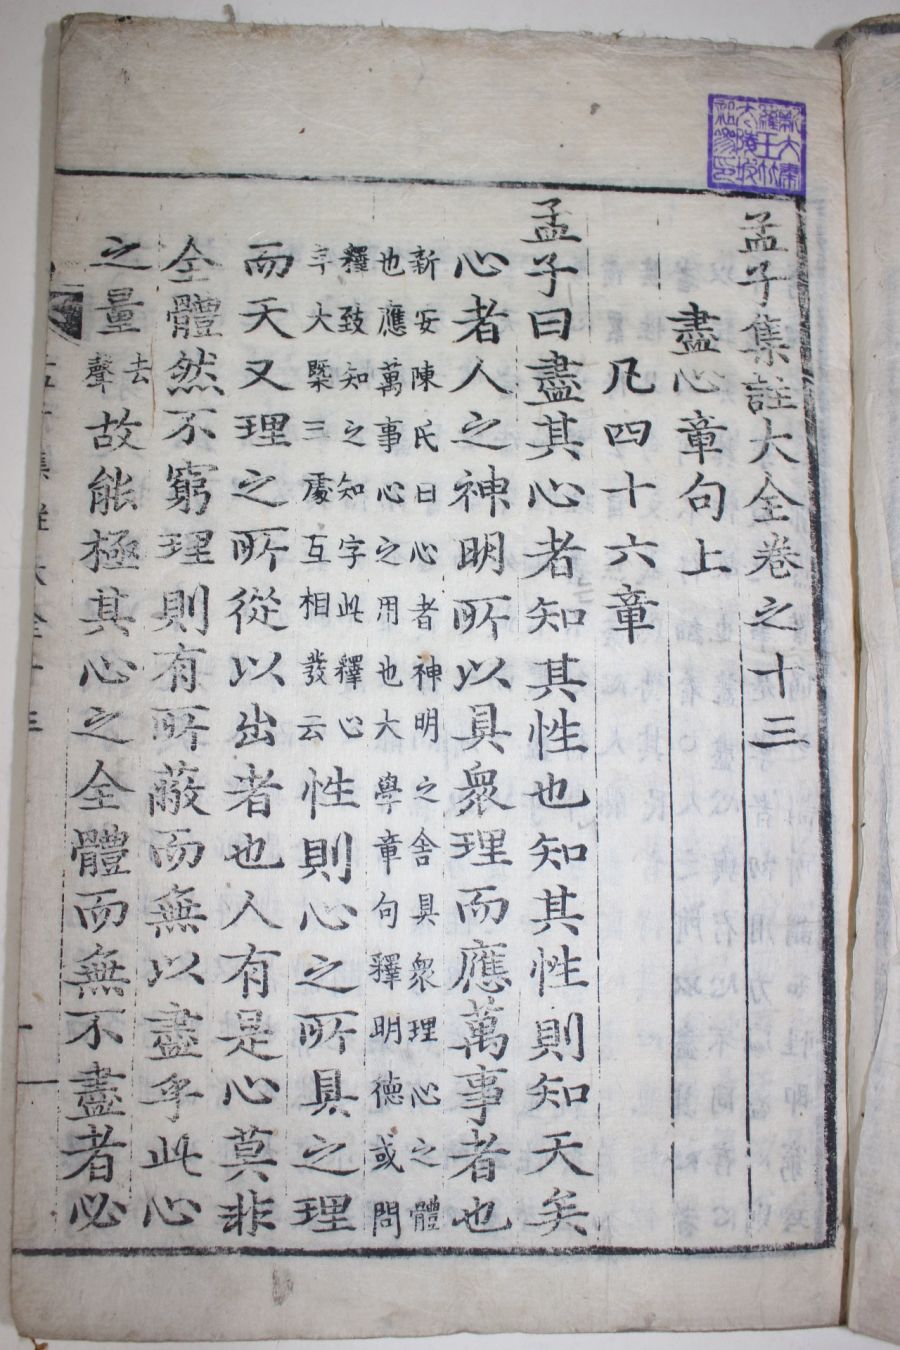 孟子集註大全卷之十三
盡心章句上
凡四十六章
孟子曰盡其心者知其性也知其性則知天矣
心者人之神明所以具衆理而應萬事者也
新安陳氏曰心者神明之舍具衆理心之體
也應萬事心之用也大學章句釋明德或問
釋致知之知字此釋心
字大槩三處互相發云
性則心之所具之理
而天又理之所從以出者也人有是心莫非
全體然不窮理則有所蔽而無以盡乎此心
之量去聲故能極其心之全體而無不盡者必